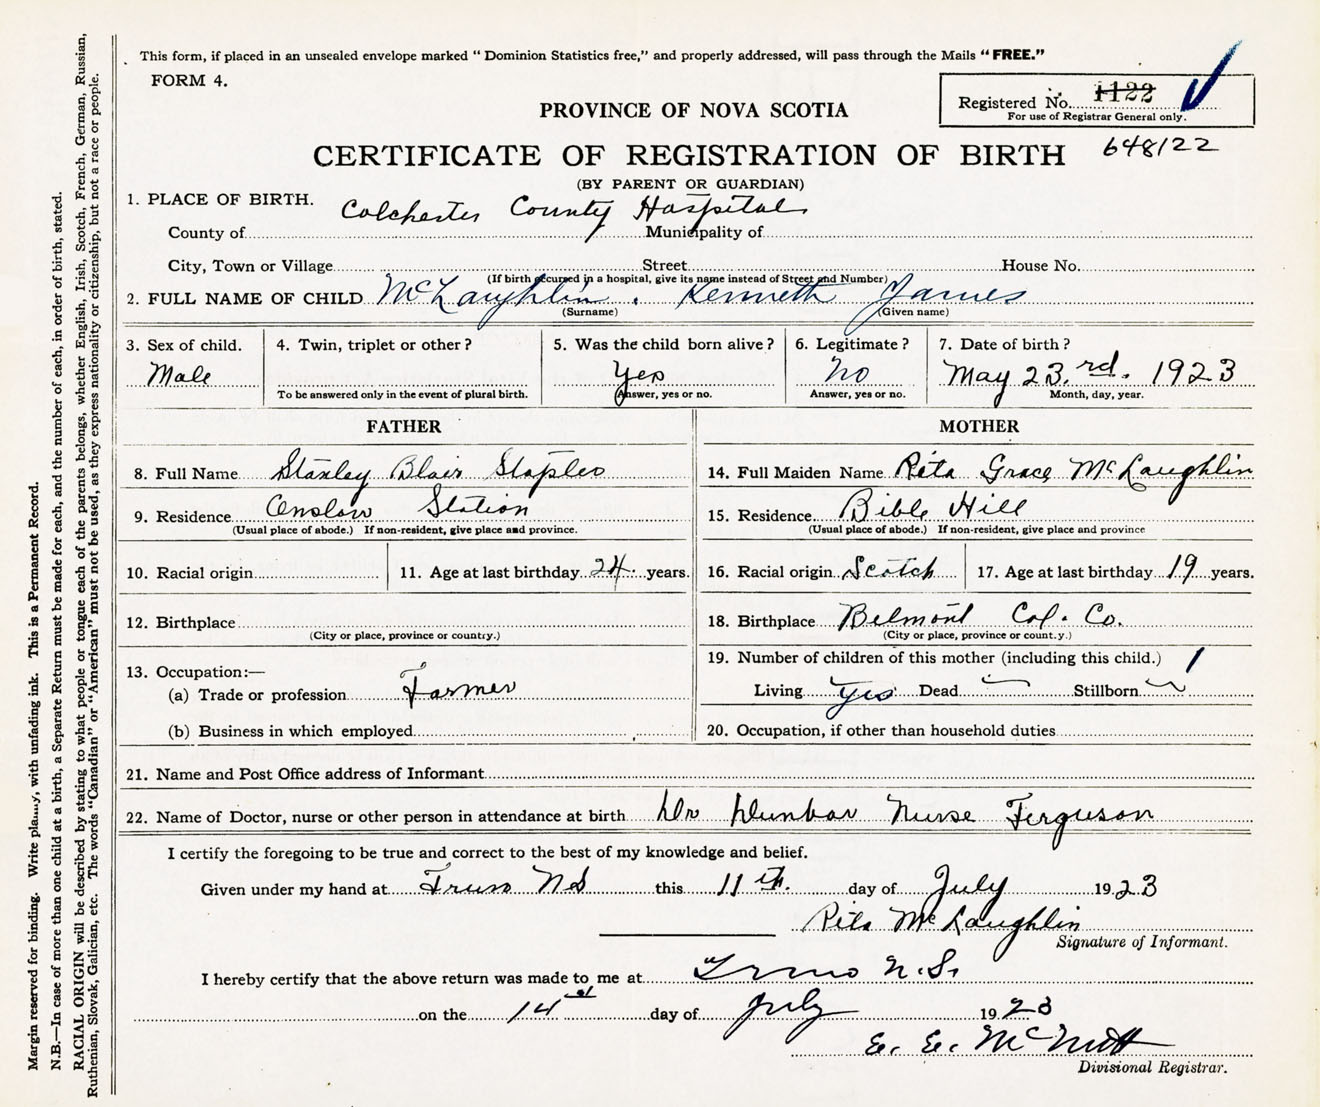 This form, if placed in an unsealed envelope marked "Dominion Statistics free," and properly addressed, will pass through the Mails "FREE."
FORM 4.
Registered No. 1122
For use of Registrar General only.
PROVINCE OF NOVA SCOTIA
648122
CERTIFICATE OF REGISTRATION OF BIRTH
(BY PARENT OR GUARDIAN)
1. PLACE OF BIRTH. Colchester County Hospital
County of Municipality of
City, Town or Village Street House No.
(If birth occured in a hospital, give its name instead of Street and Number)
2. FULL NAME OF CHILD McLaughlin. Kenneth James
(Surname) (Given name)
3. Sex of child. 4. Twin, triplet or other? 5. Was the child born alive? 6. Legitimate? 7. Date of birth?
Male Yes No May 23.rd. 1923
To be answered only in the event of plural birth. Answer, yes or no. Answer, yes or no. Month, day, year.
FATHER MOTHER
8. Full Name Stanley Blair Staples 14. Full Maiden Name Rita Grace McLaughlin
9. Residence Onslow Station 15. Residence Bible Hill
(Usual place of abode.) If non-resident, give place and province. (Usual place of abode.) If non-resident, give place and province
10. Racial origin 11. Age at last birthday 24 years. 16. Racial origin Scotch 17. Age at last birthday 19 years.
12. Birthplace 18. Birthplace Belmont Col. Co.
(City or place, province or country.) (City or place, province or count.y.)
19. Number of children of this mother (including this child.) 1
13. Occupation:—
(a) Trade or profession Farmer Living yes Dead Stillborn
(b) Business in which employed 20. Occupation, if other than household duties
21. Name and Post Office address of Informant
22. Name of Doctor, nurse or other person in attendance at birth Dr Dunbar Nurse Ferguson
I certify the foregoing to be true and correct to the best of my knowledge and belief.
Given under my hand at Truro NS this 11th. day of July 1923
Rita McLaughlin
Signature of Informant.
I hereby certify that the above return was made to me at Truro N.S.
on the 14 day of July 1923
E. E. McNutt
Divisional Registrar.
Margin reserved for binding. Write with unfading ink. This is a Permanent Record.
N.B.—In case of more than one child at a birth, a Separate Return must be made for each, and the number of each, in order of birth, stated.
RACIAL ORIGIN will be described by stating to what people or tongue each of the parents belongs, whether English, Irish, Scotch, French, German, Russian,
Ruthenian, Slovak, Galician, etc. The words "Canadian" or "American" must not be used, as they express nationality or citizenship, but not a race or people.